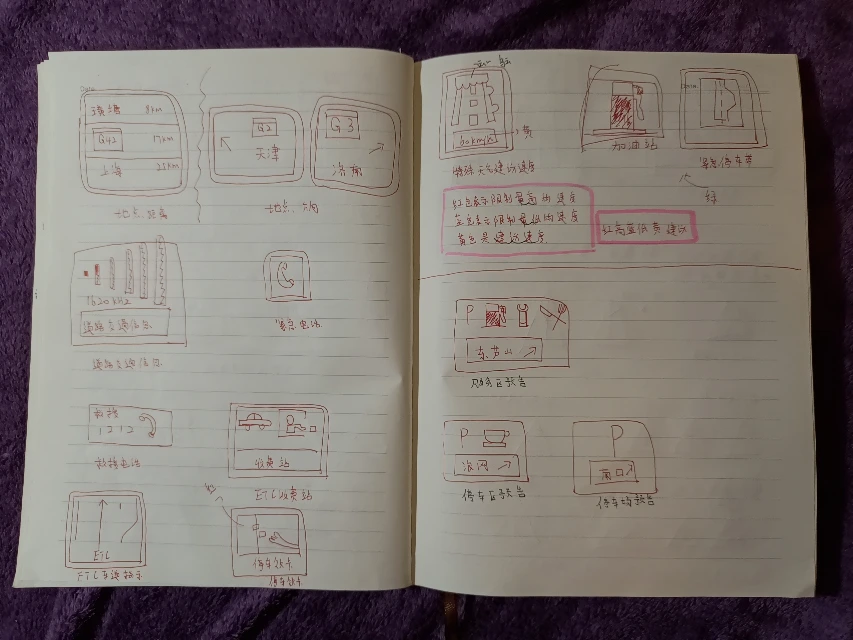 8km
G42 17km
上海 25km
地点、距离
G2
天津
地点、方向
G3
洛南
1620kHz
道路交通信息
道路交通信息
紧急电话
救援
1212
救援电话
收费站
ETC收费站
ETC
ETC车道指示
停车领卡
停车领卡
60km/h
黄
特殊天气建议速度
加油站
紧急停车带
绿
红色表示限制最高的速度
蓝色表示限制最低的速度
黄色是建议速度
红高蓝低黄建议
P
东芦山
服务区预告
P
停车区预告
P
停车场预告